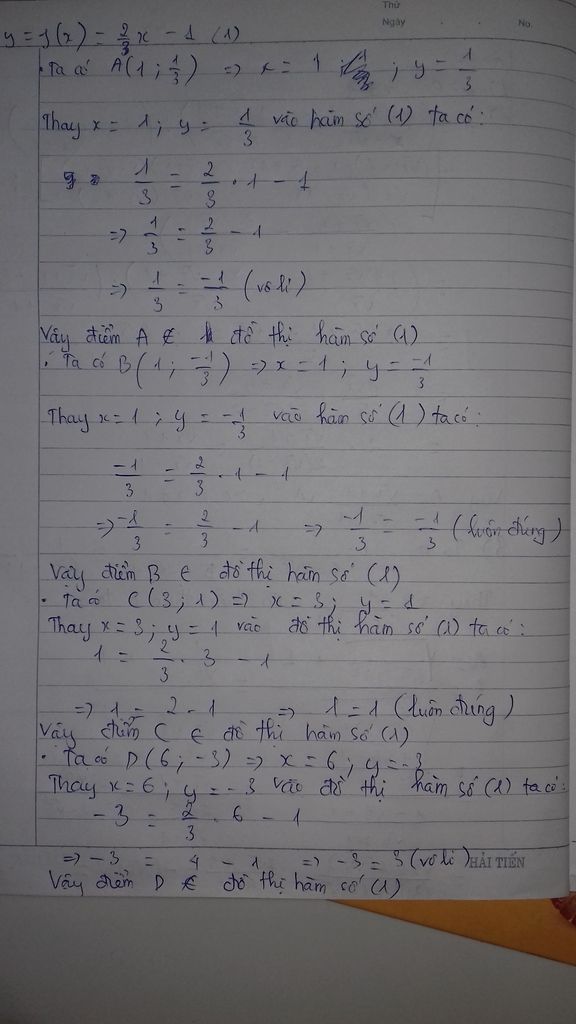 Thứ
Ngày . . No.
y = f(x) = 2/3 x - 1 (1)
• Ta có A(1 ; 1/3) => x = 1 ; y = 1/3
Thay x = 1 ; y = 1/3 vào hàm số (1) ta có :
1/3 = 2/3 . 1 - 1
=> 1/3 = 2/3 - 1
=> 1/3 = -1/3 (vô lí)
Vậy điểm A ∉ đồ thị hàm số (1)
• Ta có B(1 ; -1/3) => x = 1 ; y = -1/3
Thay x = 1 ; y = -1/3 vào hàm số (1) ta có :
-1/3 = 2/3 . 1 - 1
=> -1/3 = 2/3 - 1 => -1/3 = -1/3 (luôn đúng)
Vậy điểm B ∈ đồ thị hàm số (1)
• Ta có C(3 ; 1) => x = 3 ; y = 1
Thay x = 3 ; y = 1 vào đồ thị hàm số (1) ta có :
1 = 2/3 . 3 - 1
=> 1 = 2 - 1 => 1 = 1 (luôn đúng)
Vậy điểm C ∈ đồ thị hàm số (1)
• Ta có D(6 ; -3) => x = 6 ; y = -3
Thay x = 6 ; y = -3 vào đồ thị hàm số (1) ta có :
-3 = 2/3 . 6 - 1
=> -3 = 4 - 1 => -3 = 3 (vô lí) HẢI TIẾN
Vậy điểm D ∉ đồ thị hàm số (1)